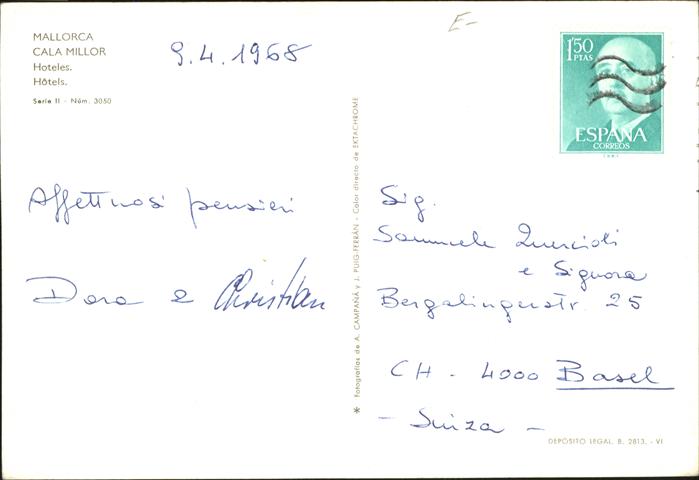 MALLORCA
CALA MILLOR
Hoteles.
Hôtels.
Serie II - Núm. 3050
9.4.1968
E-
1'50
PTAS
ESPAÑA
CORREOS
Affettuosi pensieri
Dora e Christian
* Fotografías de A. CAMPAÑÁ y J. PUIG-FERRÁN - Color directo de EKTACHROME
Sig.
Samuele Quercioli
e Signora
Bergalingerstr. 25
CH - 4000 Basel
- Suiza -
DEPÓSITO LEGAL. B. 2813. - VI